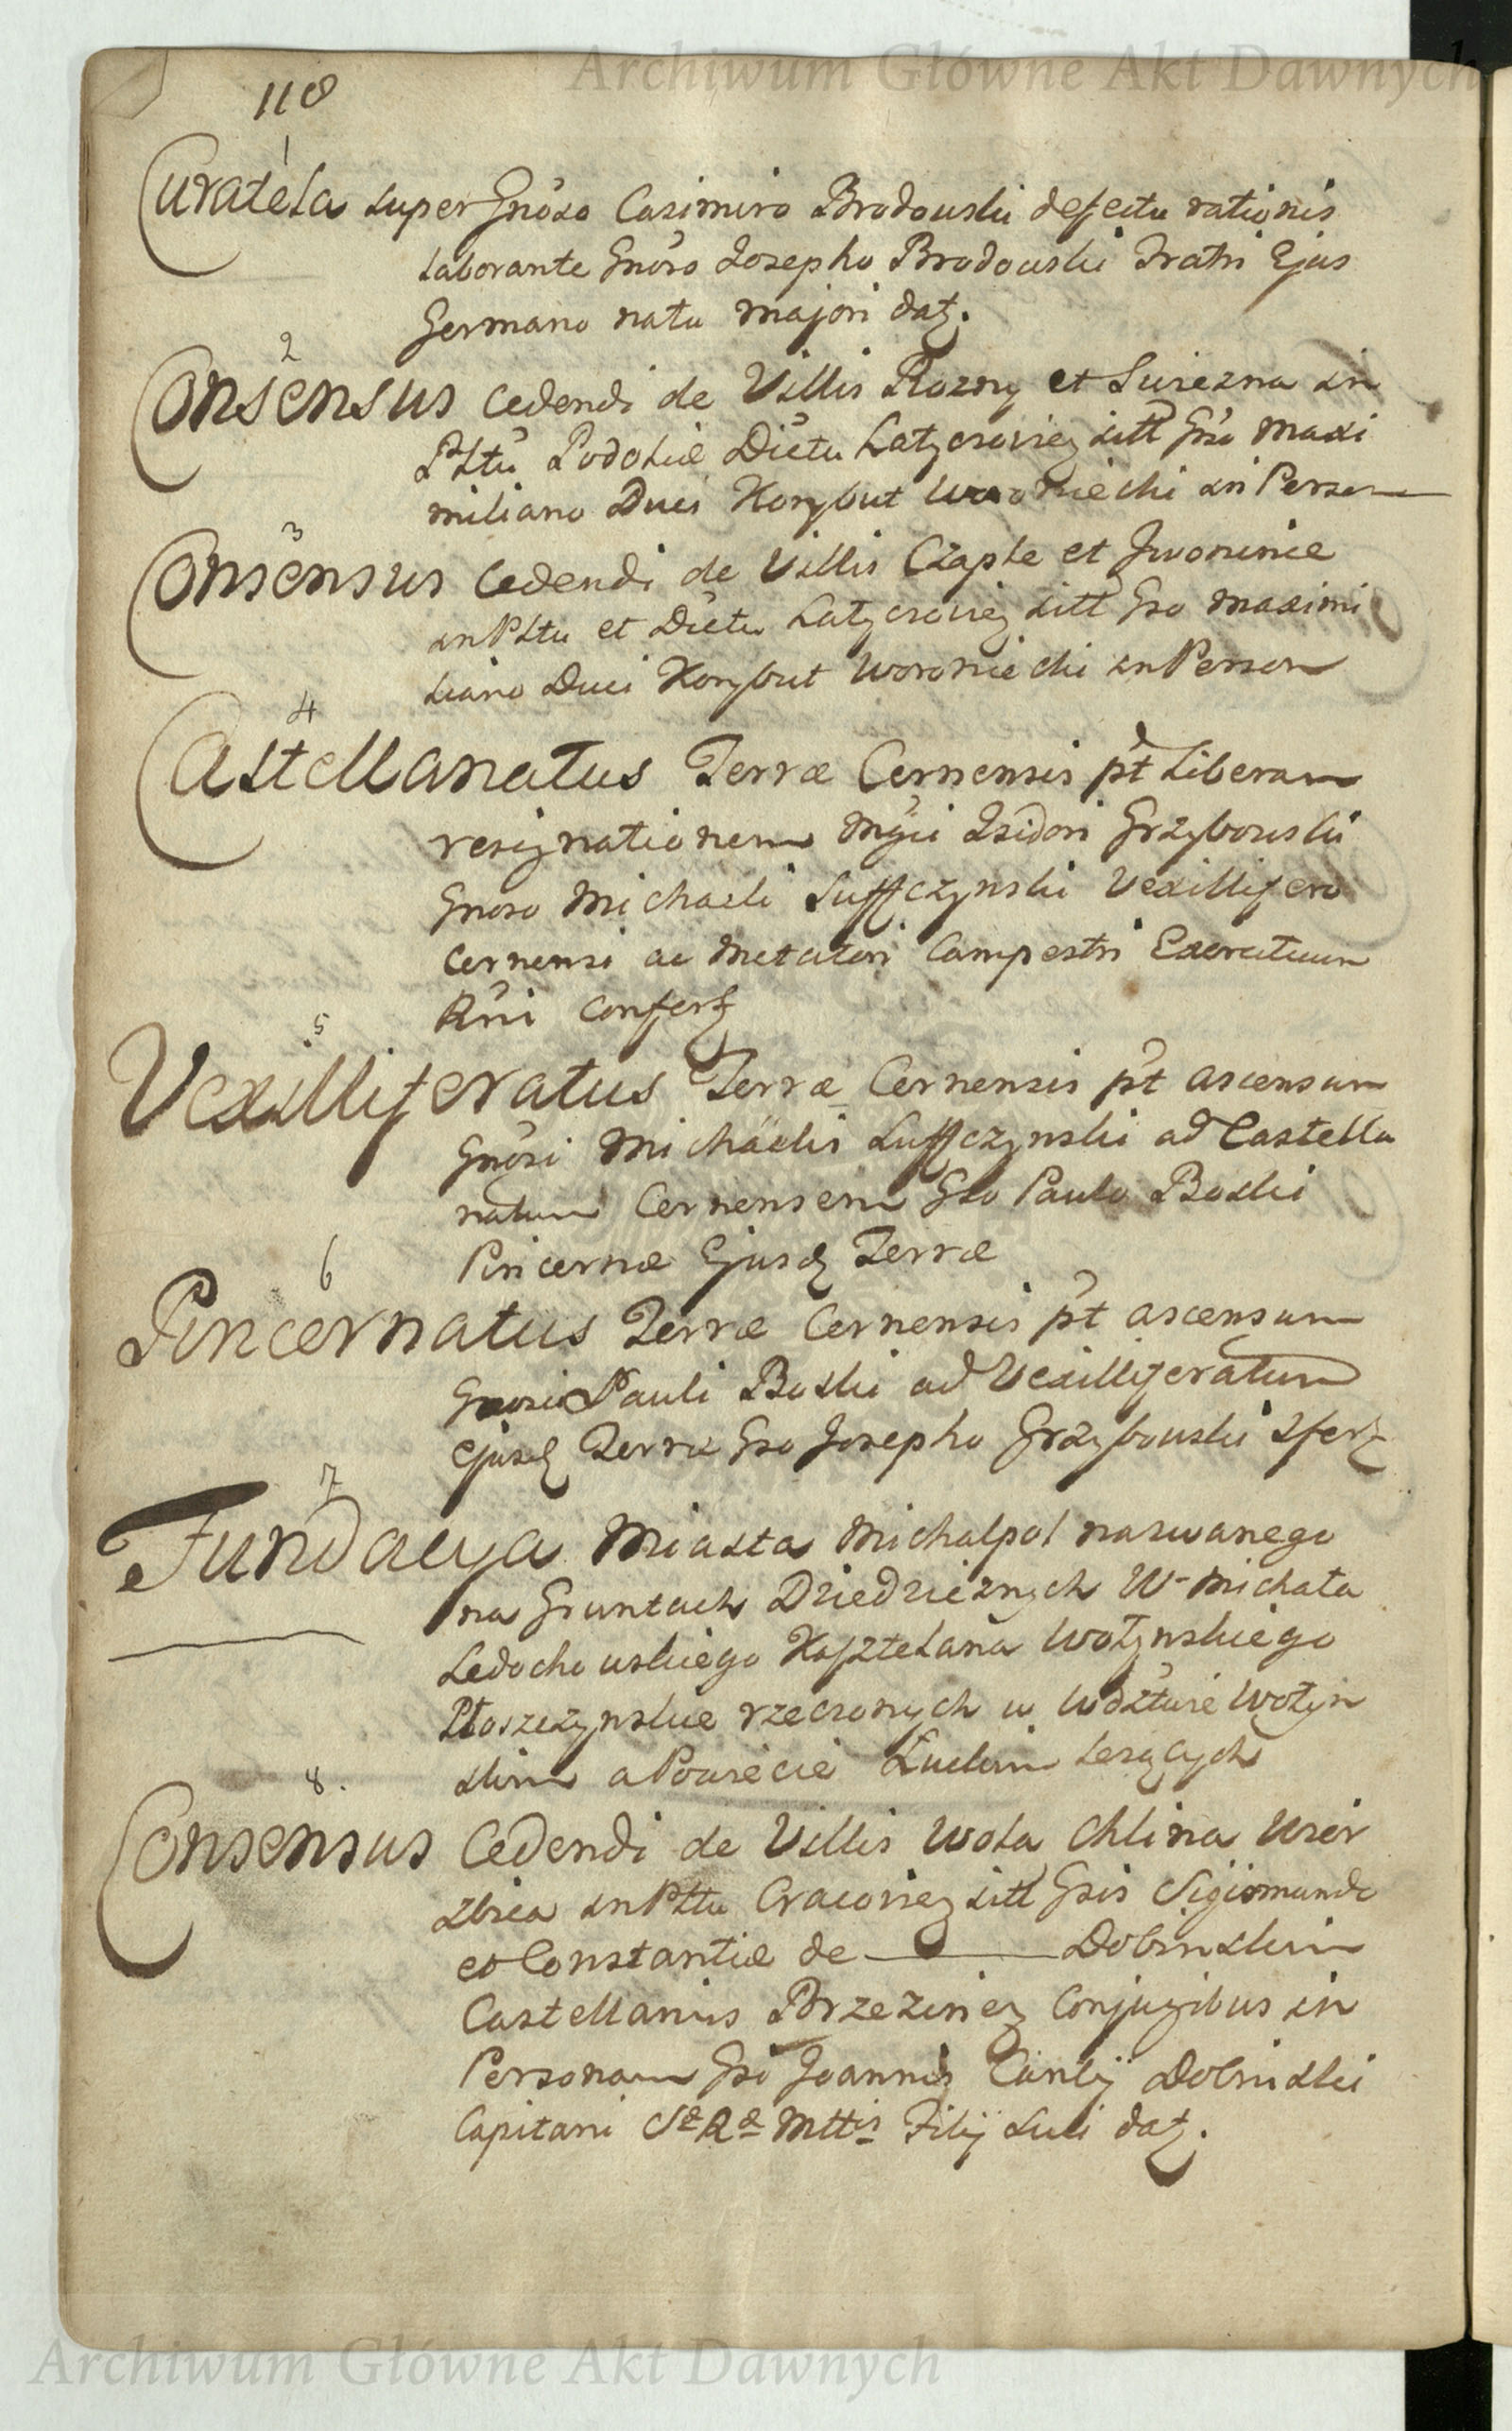 Archiwum Główne Akt Dawnych
118
1
Curatela super Gnoso Casimiro Brodowski defectu rationis
laborante Gnoso Josepho Brodowski Fratri Ejus
Germano natu majori datz.
2
Consensus cedendi de Villis Rozny et Swiezna in
Pltu Podoliæ Dictu Latyczoviez sitt Gso Maxi
miliano Duci Korybut Woroniecki in Person
3
Consensus cedendi de Villis Czaple et Jwonince
in Pltu et Dictu Latyczoviez sitt Gso Maximi
liano Duci Korybut Woroniecki in Person
4
Castellanatus Terræ Cernensis pt Liberam
resignationem Mgci Isidori Grzybowski
Gnoso Michaeli Suffczynski Vexillifero
Cernensi ac Metatori Campestri Exercituum
Rni Confertz
5
Vexilliferatus Terræ Cernensis pt ascensum
Gnosi Michaelis Suffczynski ad Castella
natum Cernensem Gso Paulo Boski
Pincernæ Ejusdz Terræ
6
Pincernatus Terræ Cernensis pt ascensum
Gnosi Pauli Boski ad Vexilliferatum
ejusdz Terræ Gso Josepho Grzybowski
7
Fundacya Miasta Michalpol nazwanego
na Gruntach Dziedzicznych W Michała
Ledochowskiego Kasztelana Wołynskiego
rzeczonych w Wdztwie Wołyn
skim a Powiecie Łuckim lezących
8.
Consensus Cedendi de Villis Wola Chlina Wier
zbica in Pltu Cracoviez sitt Gsis Sigismundo
et Constantiæ de Dobinskim
Castellanis Brzeziniez Conjugibus in
Personam Gso Joannis Cantij Dobinski
Capitani Sæ Ræ Mttis Filij sui datz.
Archiwum Główne Akt Dawnych